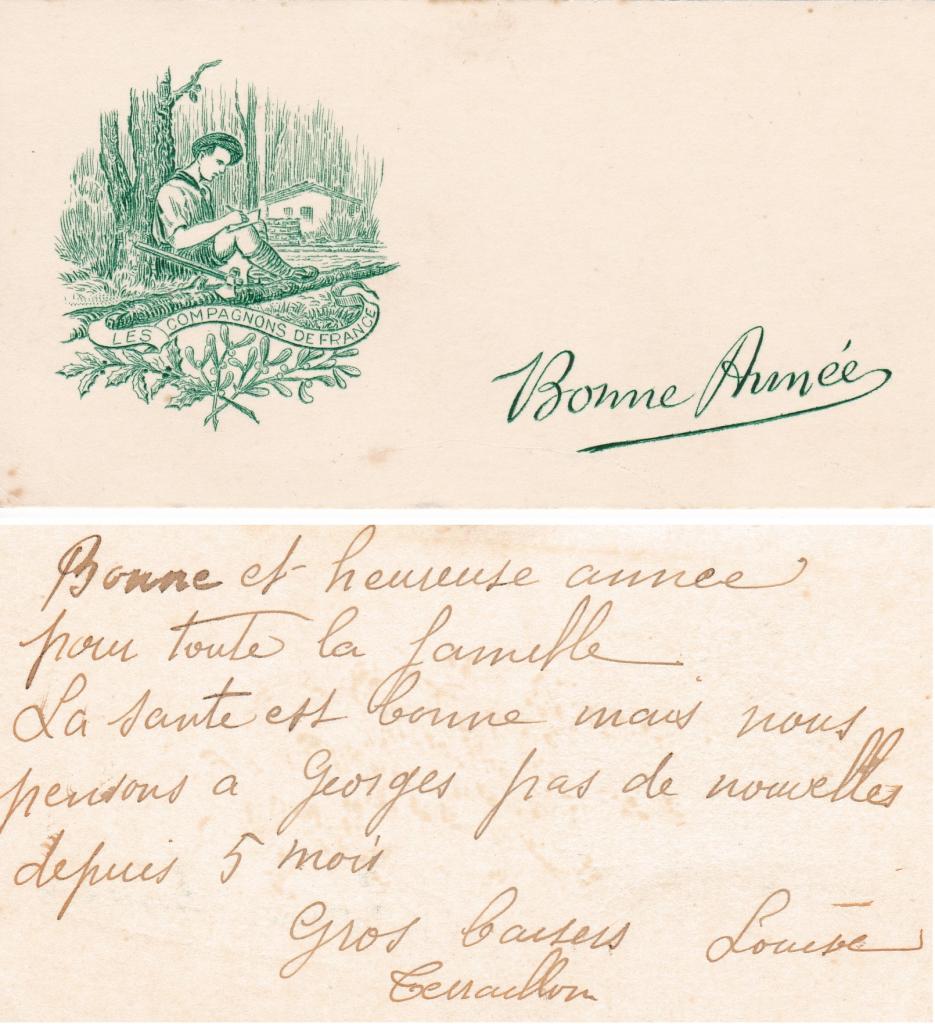 LES COMPAGNONS DE FRANCE
Bonne Année
Bonne et heureuse annee
pour toute la famille
La sante est bonne mais nous
pensons a Georges pas de nouvelles
depuis 5 mois
Gros baisers Louise
Terraillon